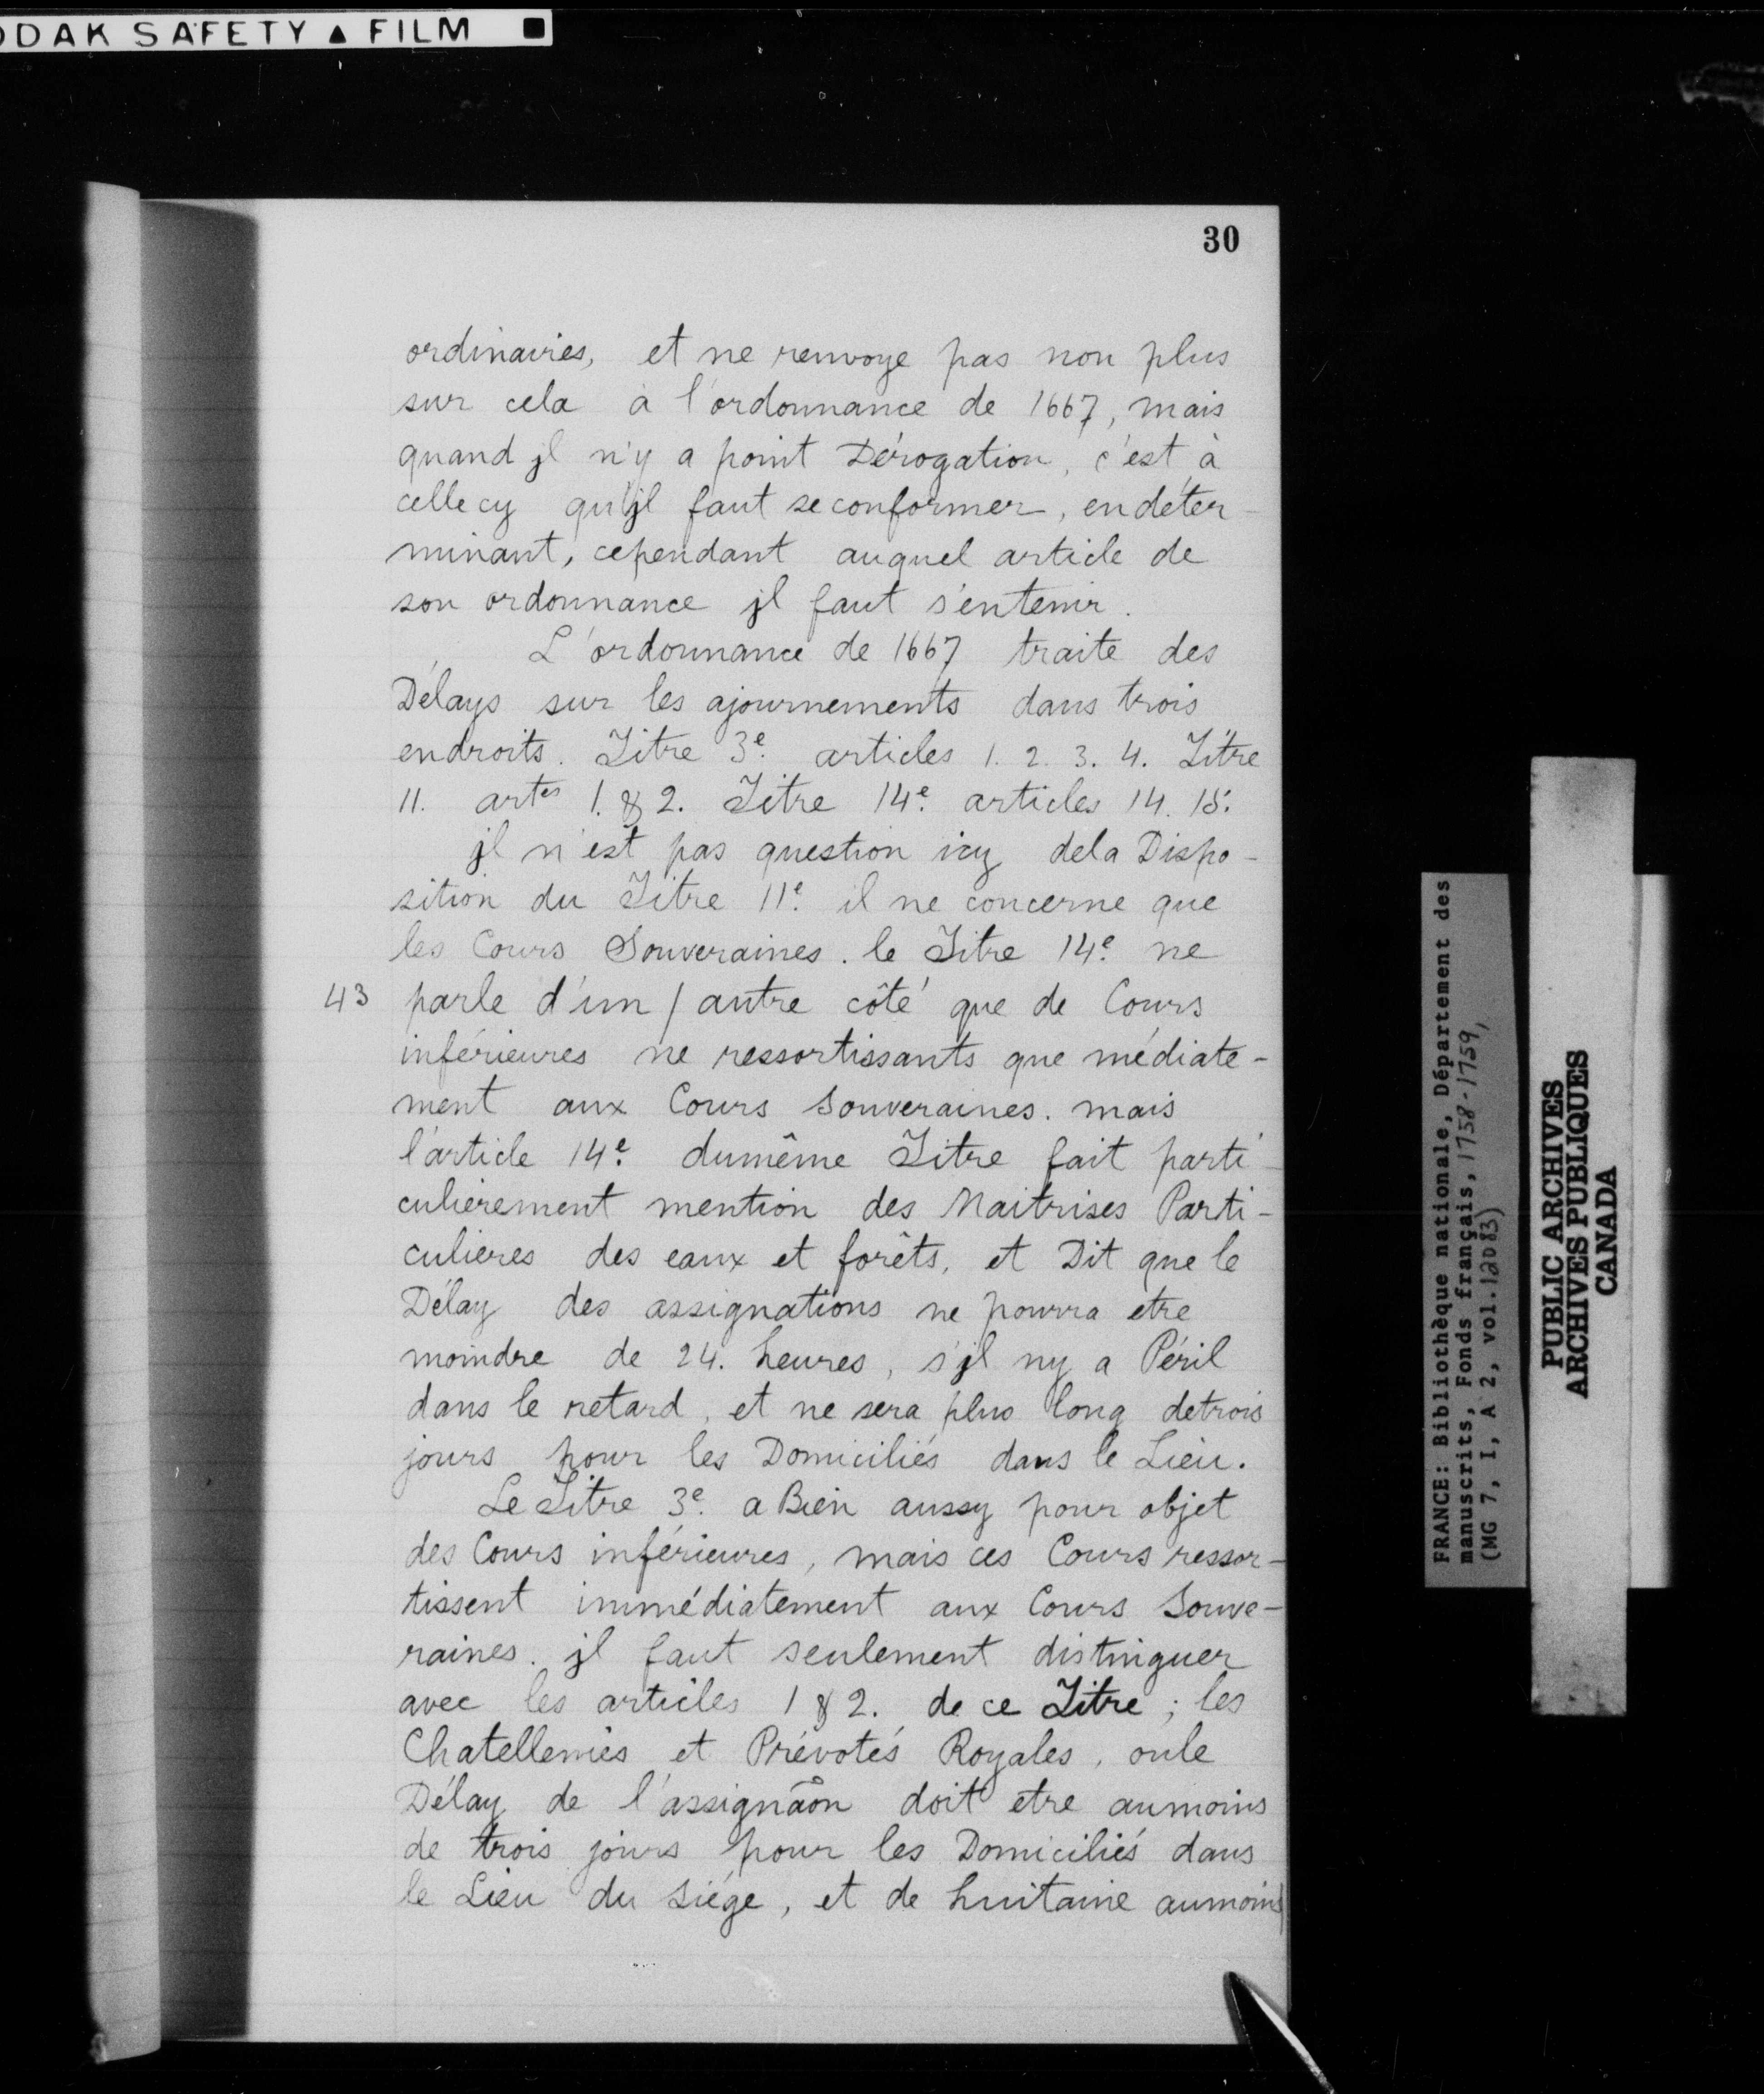 ODAK SAFETY ▲ FILM ■
30
ordinaires, et ne renvoye pas non plus
sur cela à l'ordonnance de 1667, mais
quand jl n'y a point Dérogation, c'est à
celle cy qu'jl faut se conformer, en déter-
minant, cependant auquel article de
son ordonnance jl faut s'entenir.
L'ordonnance de 1667 traite des
Délays sur les ajournements dans trois
endroits. Titre 3e. articles 1. 2. 3. 4. Titre
11. artes 1. & 2. Titre 14e. articles 14. 15.
jl n'est pas question icy dela Dispo-
sition du Titre 11e. il ne concerne que
les Cours Souveraines. le Titre 14e. ne
43 parle d'un / autre côté que de Cours
inférieures ne ressortissants que médiate-
ment aux Cours Souveraines. mais
l'article 14e. dumême Titre fait parti-
culièrement mention des Maitrises Parti-
culieres des eaux et forêts, et Dit que le
Délay des assignations ne pourra etre
moindre de 24. heures, s'jl ny a Péril
dans le retard, et ne sera plus long detrois
jours pour les Domiciliés dans le Lieu.
Le Titre 3e. a Bien aussy pour objet
des Cours inférieures, mais ces Cours ressor-
tissent immédiatement aux Cours Souve-
raines. jl faut seulement distinguer
avec les articles 1 & 2. de ce Titre; les
Chatellenies et Prévotés Royales, oule
Délay de l'assignãon doit etre aumoins
de trois jours pour les Domiciliés dans
le Lieu du Siége, et de huitaine aumoins
FRANCE: Bibliothèque nationale, Département des
manuscrits, Fonds français, 1758-1759,
(MG 7, I, A 2, vol. 12083)
PUBLIC ARCHIVES
ARCHIVES PUBLIQUES
CANADA